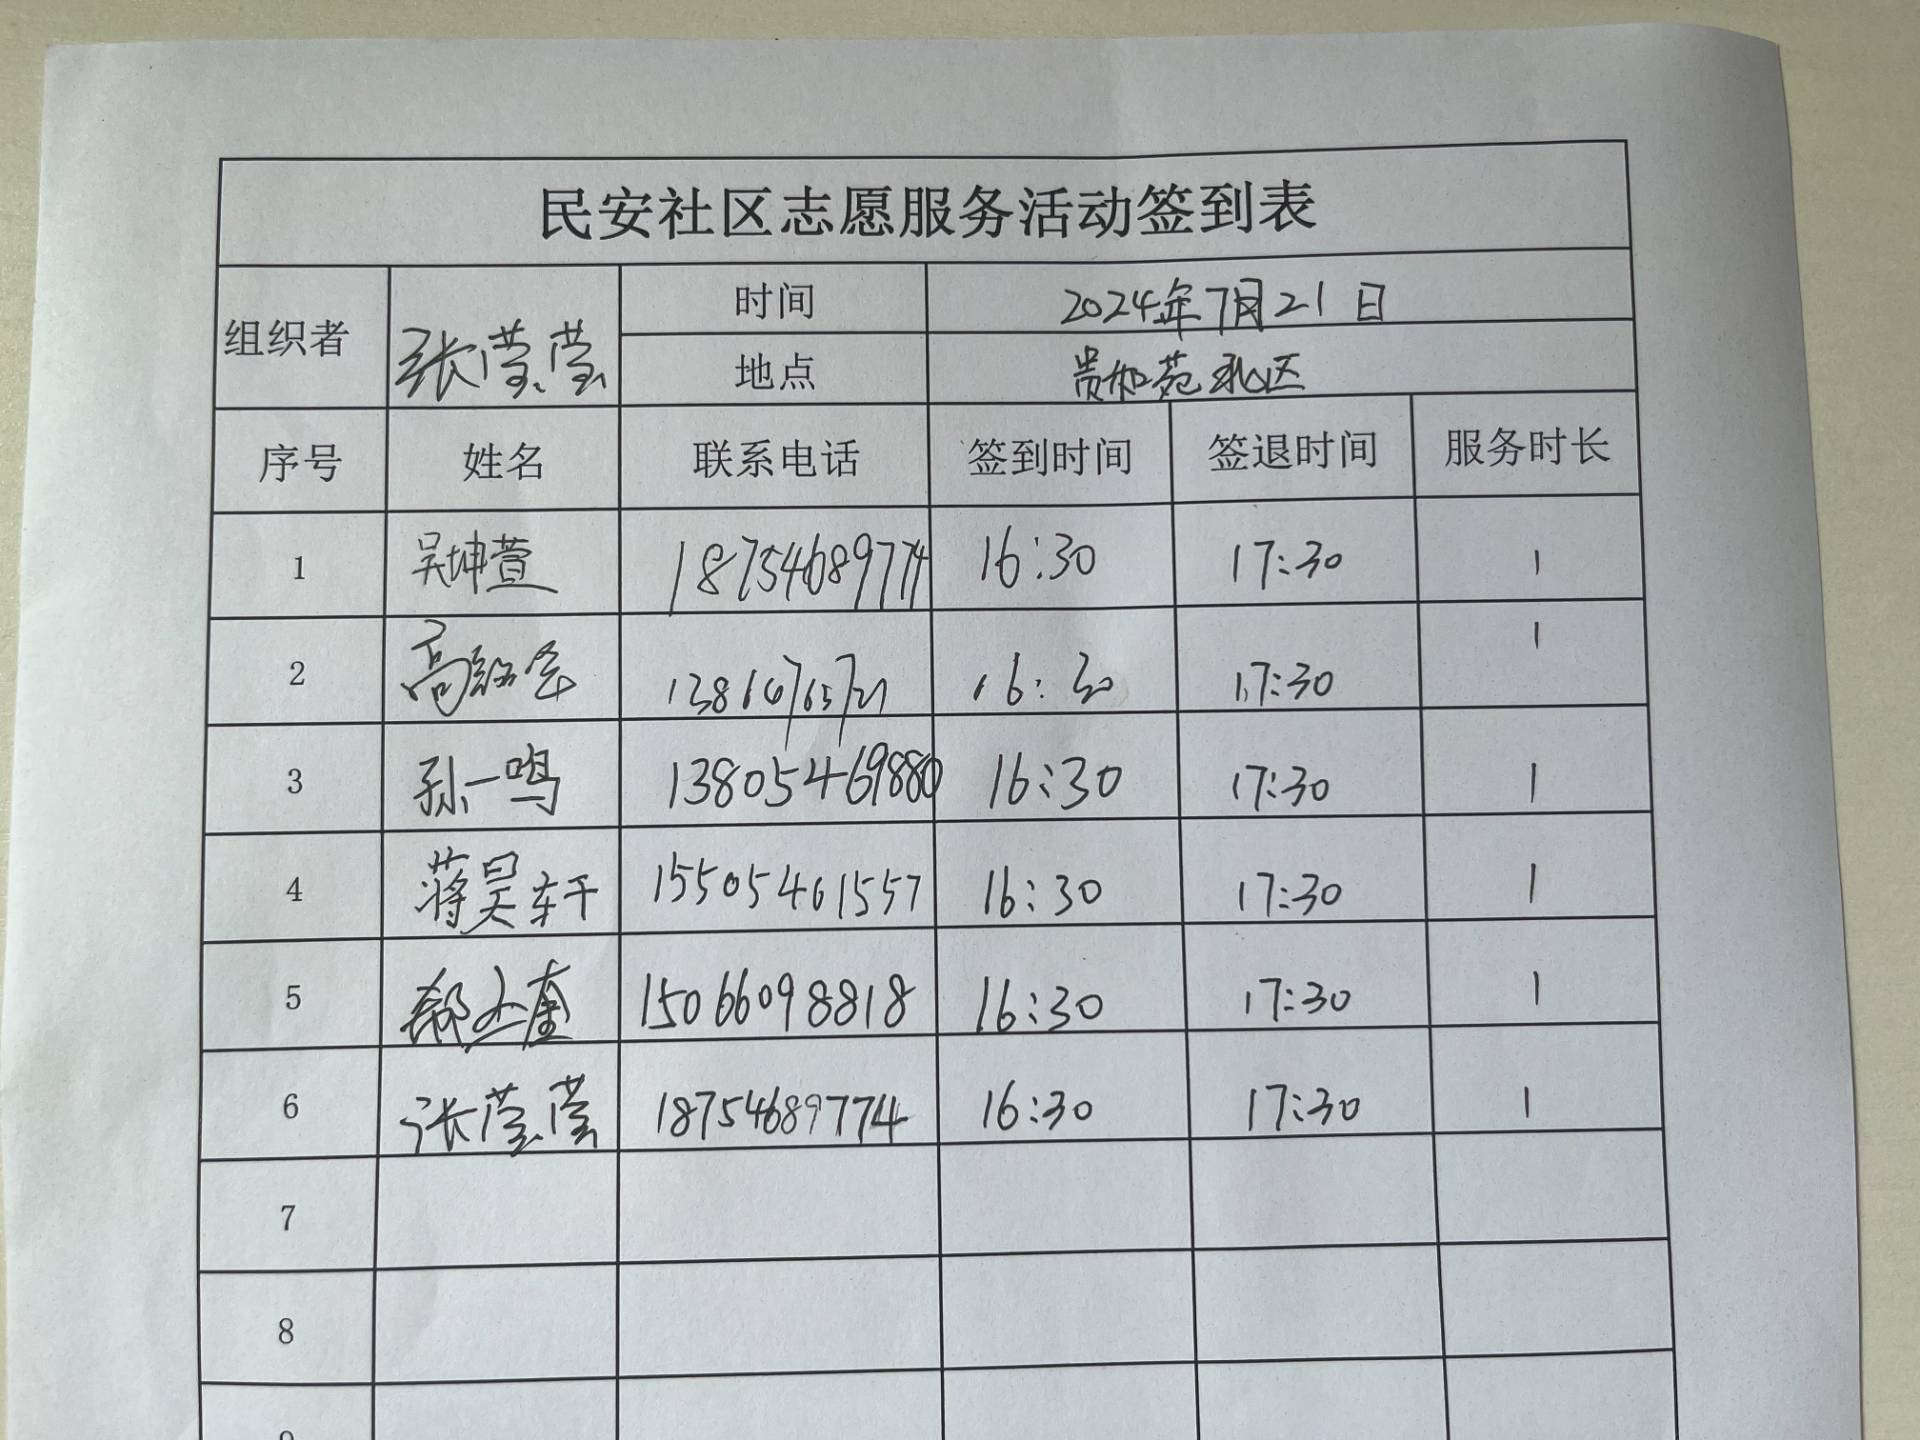 民安社区志愿服务活动签到表
组织者 张莹莹 时间 2024年7月21日
地点 贵和苑北区
序号 姓名 联系电话 签到时间 签退时间 服务时长
1 吴坤萱 18754689774 16:30 17:30 1
2 高 16:30 17:30 1
3 孙一鸣 13805469880 16:30 17:30 1
4 蒋昊轩 15505461557 16:30 17:30 1
5 15066098818 16:30 17:30 1
6 张莹莹 18754689774 16:30 17:30 1
7
8